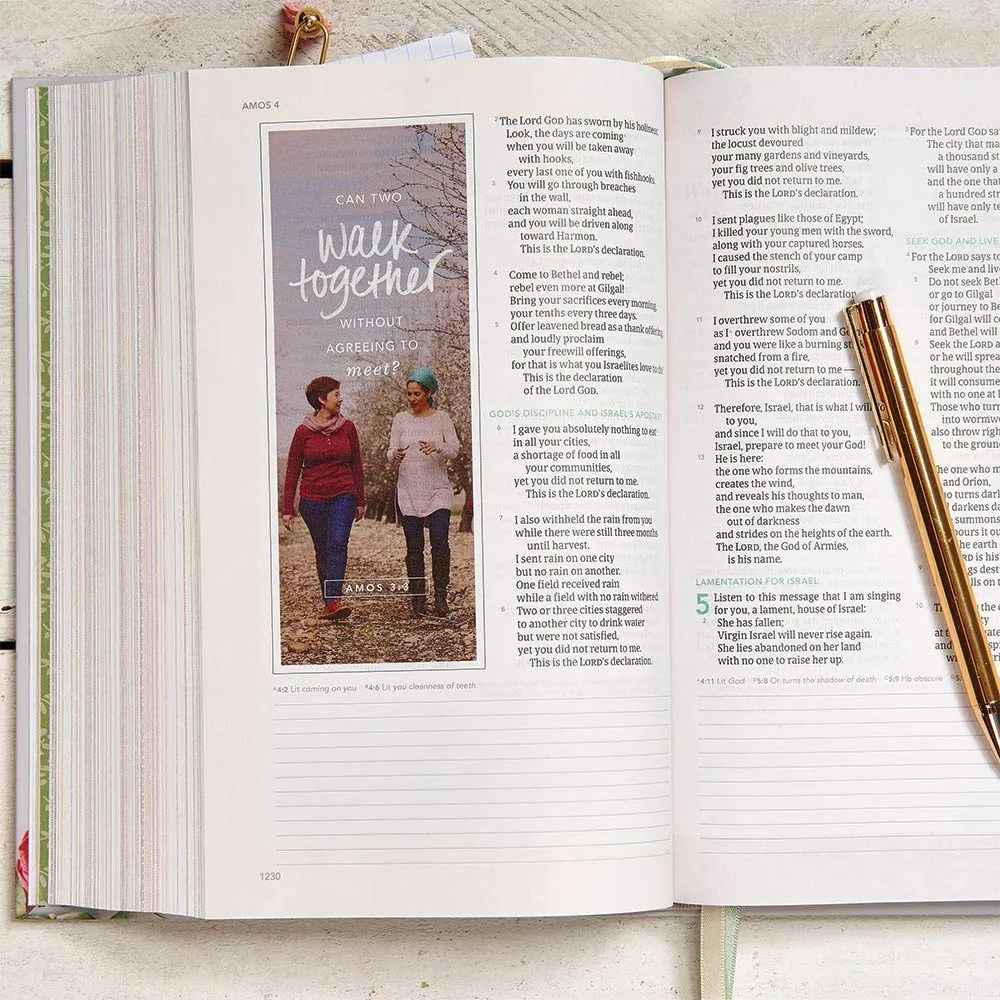 AMOS 4
CAN TWO
walk
together
WITHOUT
AGREEING TO
meet?
AMOS 3:3
2 The Lord GOD has sworn by his holiness:
Look, the days are coming
when you will be taken away
with hooks,
every last one of you with fishhooks.
3 You will go through breaches
in the wall,
each woman straight ahead,
and you will be driven along
toward Harmon.
This is the LORD's declaration.
4 Come to Bethel and rebel;
rebel even more at Gilgal!
Bring your sacrifices every morning,
your tenths every three days.
5 Offer leavened bread as a thank offering,
and loudly proclaim
your freewill offerings,
for that is what you Israelites love to do!
This is the declaration
of the Lord GOD.
GOD'S DISCIPLINE AND ISRAEL'S APOSTASY
6 I gave you absolutely nothing to eat
in all your cities,
a shortage of food in all
your communities,
yet you did not return to me.
This is the LORD's declaration.
7 I also withheld the rain from you
while there were still three months
until harvest.
I sent rain on one city
but no rain on another.
One field received rain
while a field with no rain withered.
8 Two or three cities staggered
to another city to drink water
but were not satisfied,
yet you did not return to me.
This is the LORD's declaration.
A4:2 Lit coming on you B4:6 Lit you cleanness of teeth
1230
9 I struck you with blight and mildew;
the locust devoured
your many gardens and vineyards,
your fig trees and olive trees,
yet you did not return to me.
This is the LORD's declaration.
10 I sent plagues like those of Egypt;
I killed your young men with the sword,
along with your captured horses.
I caused the stench of your camp
to fill your nostrils,
yet you did not return to me.
This is the LORD's declaration.
11 I overthrew some of you
as I overthrew Sodom and
and you were like a burning
snatched from a fire,
yet you did not return to me —
This is the LORD's declaration.
12 Therefore, Israel, that is what I will do
to you,
and since I will do that to you,
Israel, prepare to meet your God!
13 He is here:
the one who forms the mountains,
creates the wind,
and reveals his thoughts to man,
the one who makes the dawn
out of darkness
and strides on the heights of the earth.
The LORD, the God of Armies,
is his name.
LAMENTATION FOR ISRAEL
5 Listen to this message that I am singing
for you, a lament, house of Israel:
2 She has fallen;
Virgin Israel will never rise again.
She lies abandoned on her land
with no one to raise her up.
A4:11 Lit God B5:8 Or turns the shadow of death C5:9 Hb obscure
3 For the Lord GOD
The city that
a thousand
will have only a
and the one
a hundred
will have only
of Israel.
SEEK GOD AND LIVE
4 For the LORD says to
Seek me and
5 Do not seek
or go to Gilgal
or journey to
for Gilgal will
and Bethel will
6 Seek the LORD
or he will
throughout the
it will consume
with no one at
7 Those who turn
into
also throw
to the
and Orion,
10